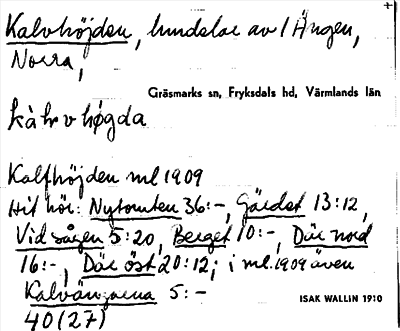 Kalvhöjden, lundelar av 1 Ängen,
Norra,
Gräsmarks sn, Fryksdals hd, Värmlands län
kàhvhøgda
Kalfhöjden ml 1909
Hit hör: Nytomten 36:-, Gärdet 13:12,
Vid sågen 5:20, Berget 10:-, Där nord
16:-, Där öst 20:12; i ml. 1909 även
Kalvängarna 5:-
ISAK WALLIN 1910
40(27)